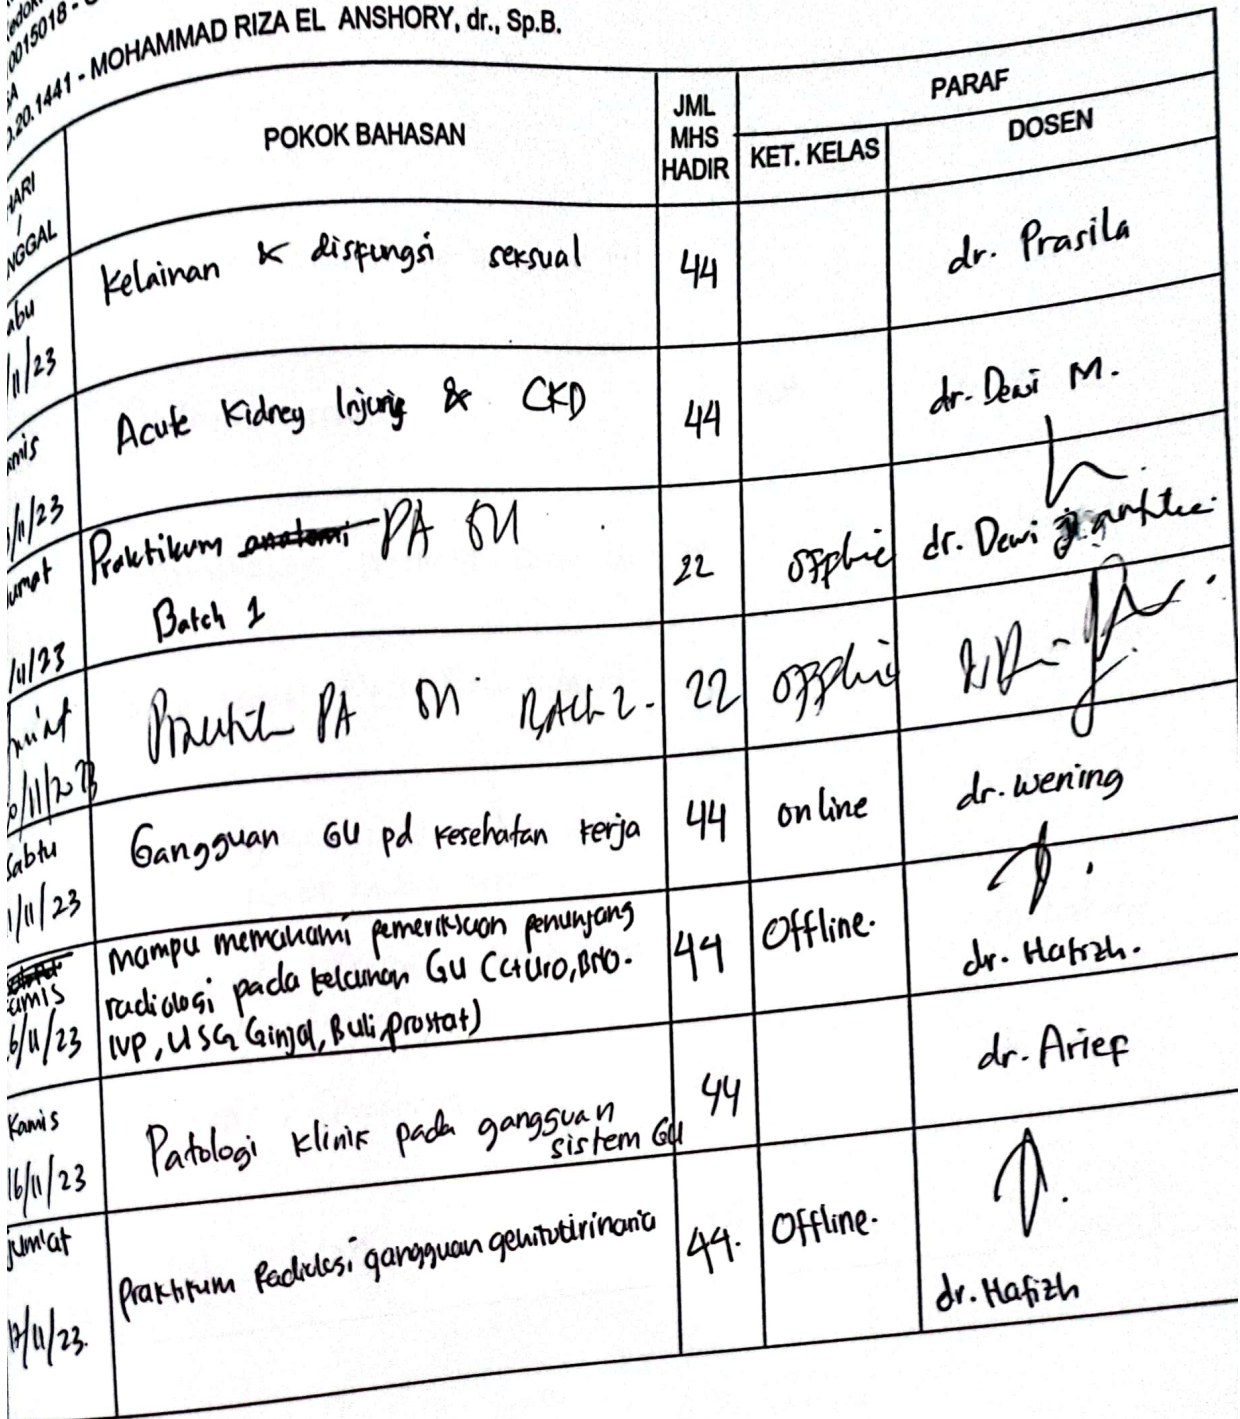 0015018 -
0.20.1441 - MOHAMMAD RIZA EL ANSHORY, dr., Sp.B.
HARI
/
NGGAL
POKOK BAHASAN
JML
MHS
HADIR
PARAF
KET. KELAS
DOSEN
abu
/11/23
Kelainan & disfungsi seksual
44
dr. Prasila
amis
/11/23
Acute Kidney Injury & CKD
44
dr. Dewi M.
umat
/11/23
Praktikum anatomi PA GU
Batch 1
22
offline
dr. Dewi
/11/2023
PA GU Batch 2.
22
offline
Sabtu
/11/23
Gangguan GU pd kesehatan kerja
44
online
dr. Wening
amis
6/11/23
Mampu memahami pemeriksaan penunjang
radiologi pada kelainan GU (Ct Uro, BNO.
IVP, USG Ginjal, Buli, Prostat)
44
Offline.
dr. Hafizh.
Kamis
16/11/23
Patologi klinik pada gangguan
sistem GU
44
dr. Arief
Jum'at
17/11/23.
Praktikum Radiologi gangguan genitotirinaria
44.
Offline.
dr. Hafizh